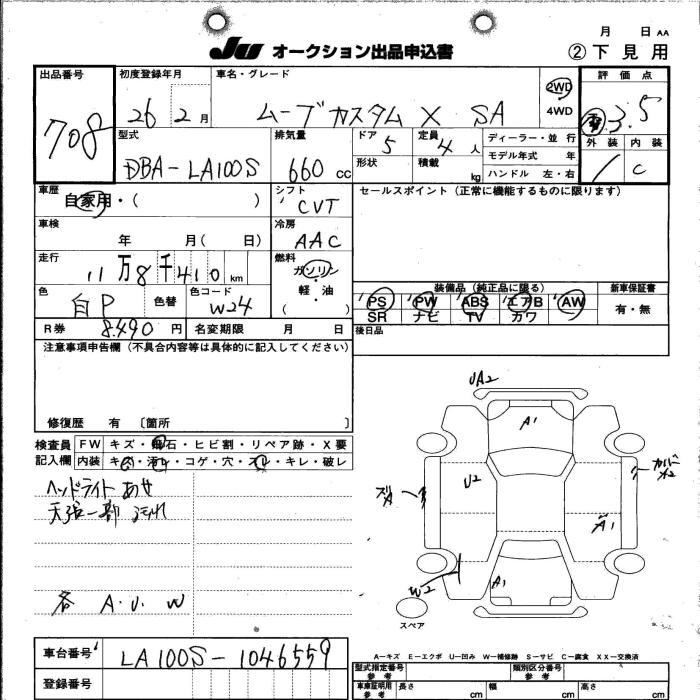 月 日 AA
JU オークション出品申込書 ②下見用
出品番号 708
初度登録年月 26 2月
車名・グレード ムーブカスタム X SA
2WD
4WD
評価点 3.5
外装 内装 C
型式 DBA-LA100S
排気量 660 cc
ドア 5
定員 4人
形状 積載 kg
ディーラー・並行
モデル年式 年
ハンドル 左・右
車歴 自家用・( )
シフト CVT
セールスポイント (正常に機能するものに限ります)
車検 年 月( 日)
冷房 AAC
走行 11万8千410km
燃料 ガソリン
軽・油
( )
色 白P 色替
色コード W24
装備品 (純正品に限る) 新車保証書
PS PW ABS エアB AW 有・無
SR ナビ TV カワ
R券 8.490円 名変期限 月 日
後日品
注意事項申告欄 (不具合内容等は具体的に記入してください)
修復歴 有 〔箇所 〕
検査員 FW キズ・飛石・ヒビ割・リペア跡・X要
記入欄 内装 キズ・汚レ・コゲ・穴・スレ・キレ・破レ
ヘッドライト あせ
天張一部 汚れ
各 A.U.W
UA2
A1
U2
ズA
カバー
A1
W2
A1
スペア
A-キズ E-エクボ U-凹み W-補修跡 S-サビ C-腐食 XX-交換済
車台番号 LA100S-1046559
型式指定番号 参考
類別区分番号 参考
登録番号
車庫証明用 参考 長さ cm 幅 cm 高さ cm